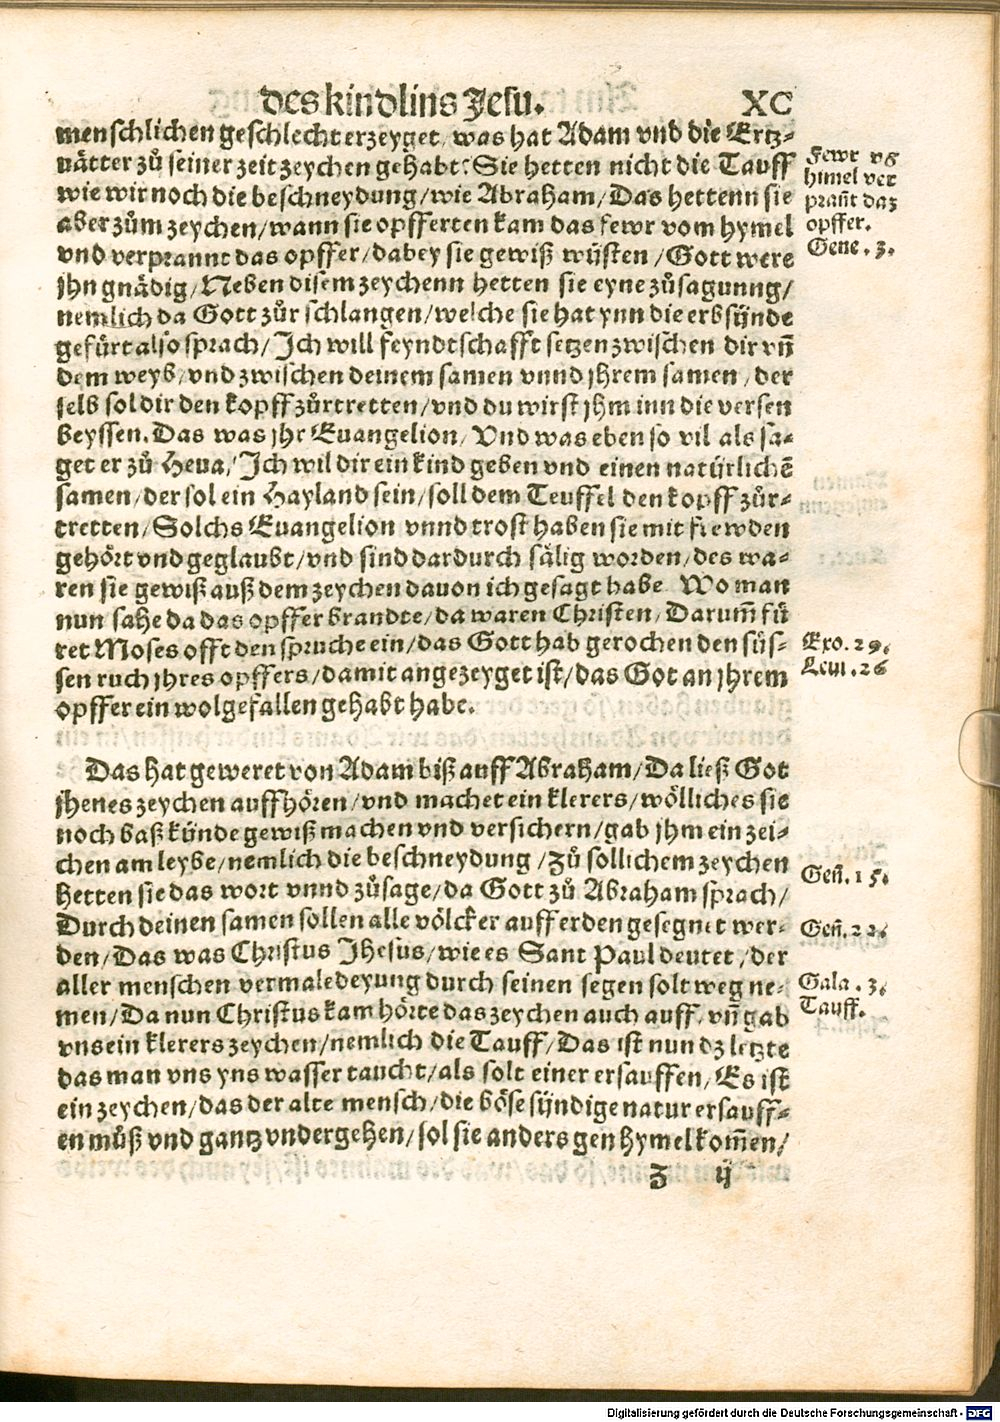 des kindlins Jesu. XC
menschlichen geschlecht erzeyget, was hat Adam vnd die Ertz-
uätter zů seiner zeit zeychen gehabt? Sie hetten nicht die Tauff
wie wir noch die beschneydung/wie Abraham/Das hettenn sie
aber zům zeychen/wann sie opfferten kam das fewr vom hymel
vnd verprannt das opffer/dabey sie gewiß wüsten/Gott were
jhn gnädig/Neben disem zeychenn hetten sie eyne zůsagunng/
nemlich da Gott zůr schlangen/welche sie hat ynn die erbsünde
gefürt also sprach/Ich will feyndtschafft setzen zwischen dir vñ
dem weyb/vnd zwischen deinem samen vnnd jhrem samen/der
selb sol dir den kopff zůrtretten/vnd du wirst jhm inn die versen
beyssen. Das was jhr Euangelion/Vnd was eben so vil als sa-
get er zů Heua/Ich wil dir ein kind geben vnd einen natürlichẽ
samen/der sol ein Hayland sein/soll dem Teuffel den kopff zůr-
tretten/Solchs Euangelion vnnd trost haben sie mit frewden
gehört vnd geglaubt/vnd sind dardurch sälig worden/des wa-
ren sie gewiß auß dem zeychen dauon ich gesagt habe Wo man
nun sahe da das opffer brandte/da waren Christen/Darum̃ fü
ret Moses offt den spruche ein/das Gott hab gerochen den süs-
sen ruch jhres opffers/damit angezeyget ist/das Got an jhrem
opffer ein wolgefallen gehabt habe.
Fewr võ
himel ver
prañt daz
opffer.
Gene. 3.
Exo. 29.
Leui. 26
Das hat geweret von Adam biß auff Abraham/Da ließ Got
jhenes zeychen auffhören/vnd machet ein klerers/wölliches sie
noch baß künde gewiß machen vnd versichern/gab jhm ein zei-
chen am leybe/nemlich die beschneydung/Zů sollichem zeychen
hetten sie das wort vnnd zůsage/da Gott zů Abraham sprach/
Durch deinen samen sollen alle völcker auff erden gesegnet wer-
den/Das was Christus Jhesus/wie es Sant Paul deutet/der
aller menschen vermaledeyung durch seinen segen solt weg ne-
men/Da nun Christus kam hörte das zeychen auch auff/vñ gab
vns ein klerers zeychen/nemlich die Tauff/Das ist nun dz letzte
das man vns yns wasser taucht/als solt einer ersauffen/Es ist
ein zeychen/das der alte mensch/die böse sündige natur ersauff-
en můß vnd gantz vndergehen/sol sie anders gen hymel kom̃en/
Geñ. 15.
Geñ. 22.
Gala. 3.
Tauff.
Z ij
Digitalisierung gefördert durch die Deutsche Forschungsgemeinschaft - DFG